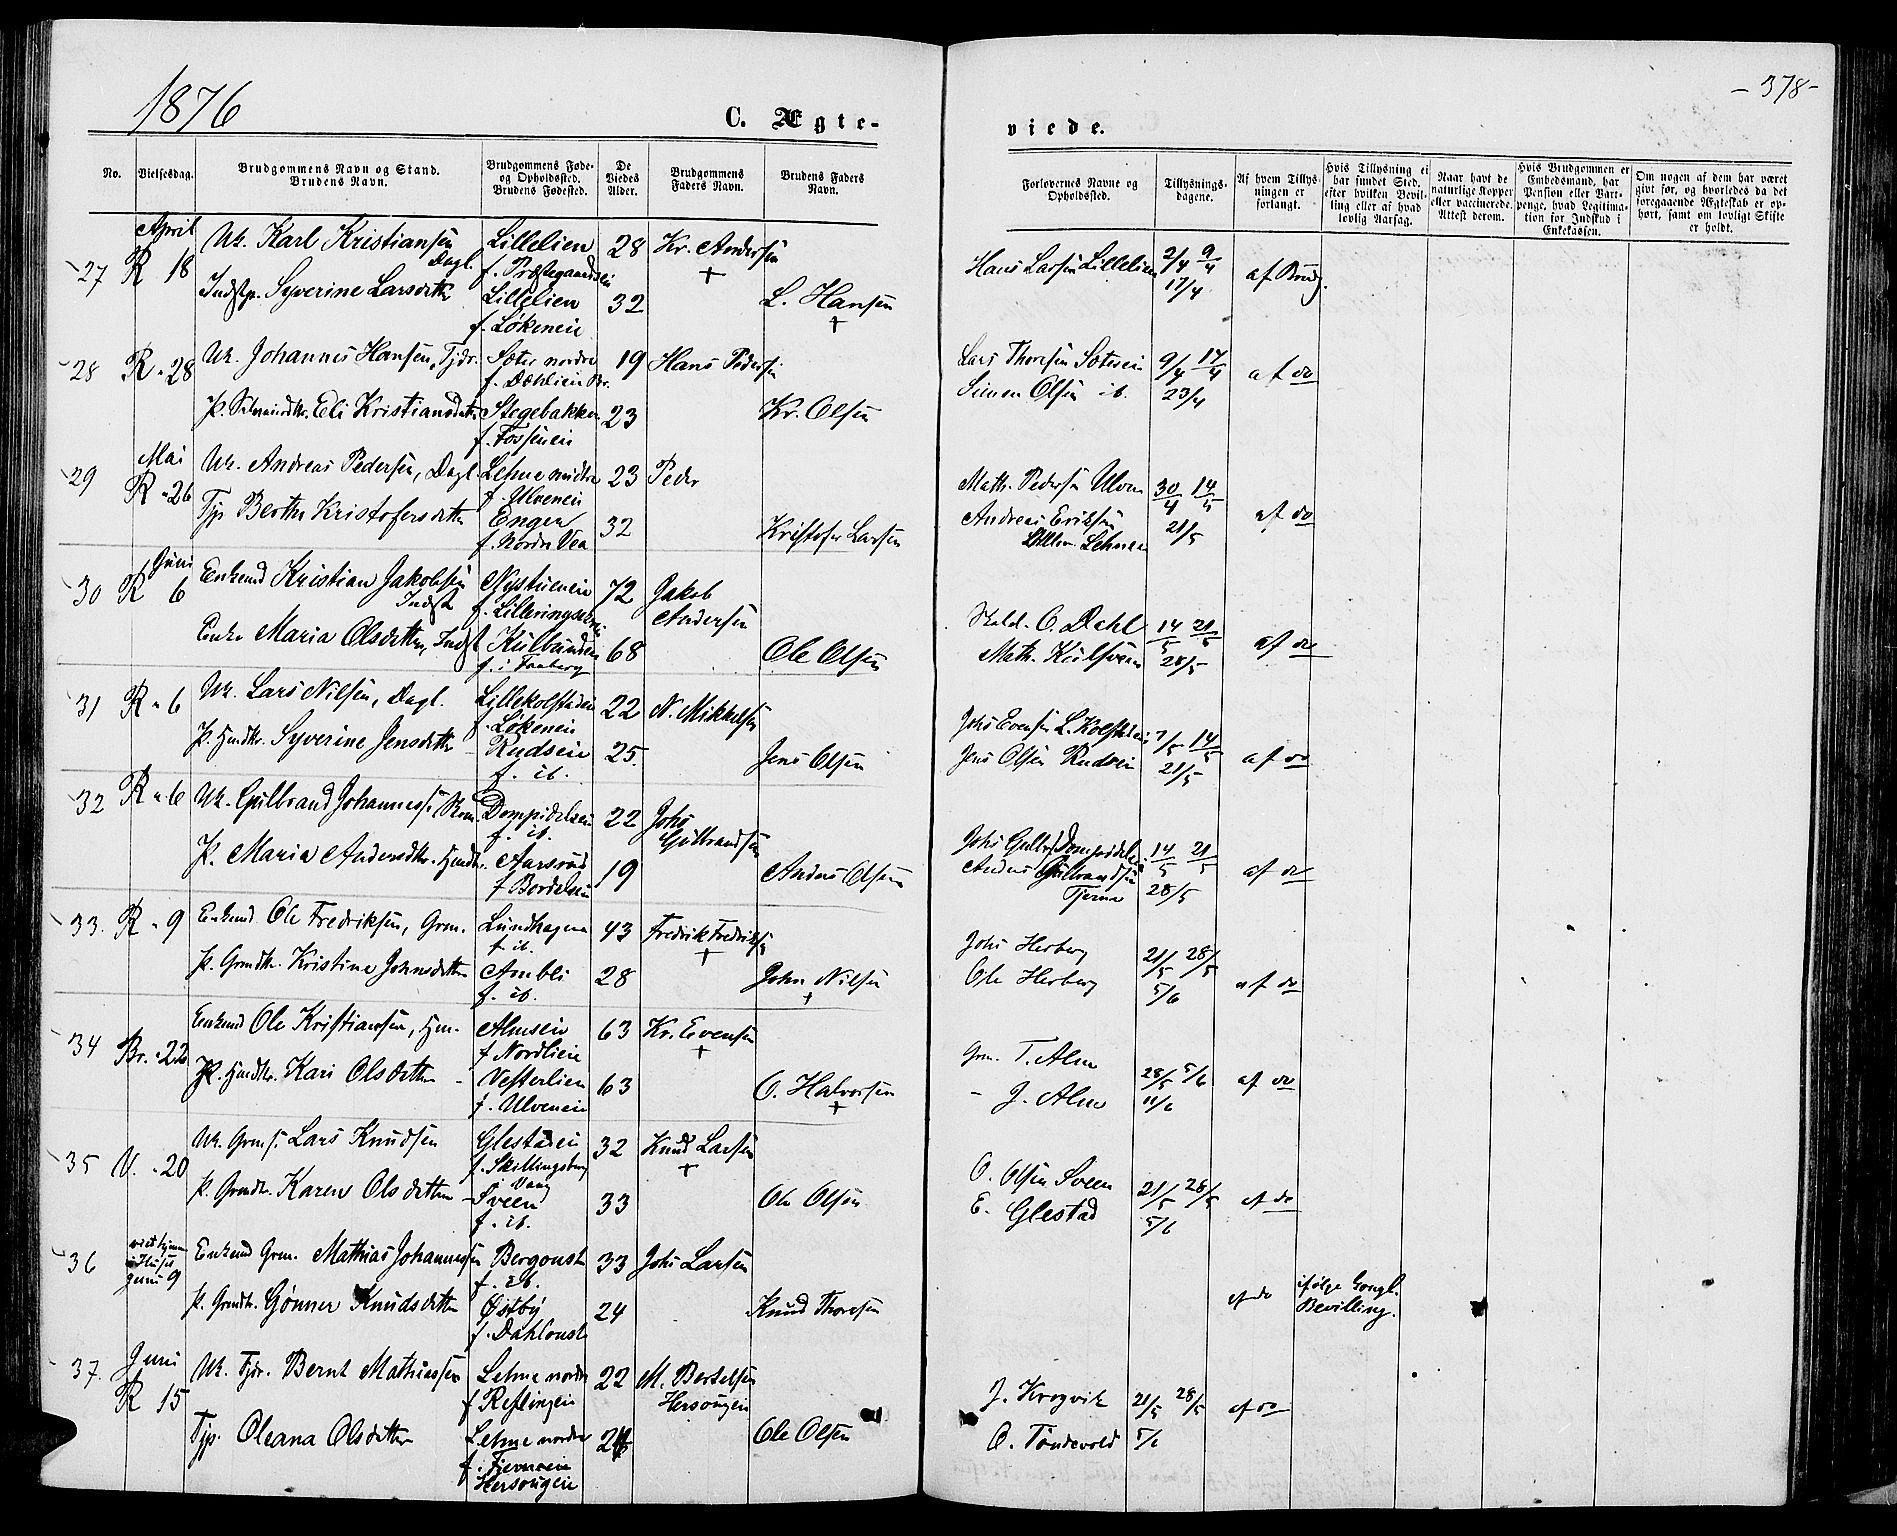 1876
C. Ægte-
viede.
- 378 -
No.
Vielsesdag.
Brudgommens Navn og Stand.
Brudens Navn.
Brudgommens Føde-
og Opholdsted.
Brudens Fødested.
De
Viedes
Alder.
Brudgommens
Faders Navn.
Brudens Faders
Navn.
Forlovernes Navne og
Opholdsted.
Tillysnings-
dagene.
Af hvem Tillys-
ningen er
forlangt.
Hvis Tillysning ei
har fundet Sted,
efter hvilken Bevil-
ling eller af hvad
lovlig Aarsag.
Naar havt de
naturlige Kopper
eller vaccinerede.
Attest derom.
Hvis Brudgommen er
Embedsmand, har
Pension eller Vart-
penge, hvad Legitima-
tion for Indskud i
Enkekassen.
Om nogen af dem har været
givt før, og hvorledes da det
foregaaende Ægteskab er op-
hørt, samt om lovligt Skifte
er holdt.
April
27 R 18 Uk. Karl Kristiansen Lillelien 28 Kr. Andersen Hans Larsen Lillelien 2/4 9/4 af Brudg.
Dagl. +
Indstp. Syverine Larsdatter Lillelien 32 L. Hansen 17/4
f. Løkeneie +
28 R " 28 Uk. Johannes Hansen, Tjdr. Sæter nordre 19 Hans Pedersen Lars Thoresen Sætereie 9/4 17/4 af do
f. Dæhlien Br.
P. Eli Kristiansdatter Stegebakken 23 Kr. Olsen Simen Olsen ib. 23/4
f. Fosseneie
Mai
29 R " 26 Uk. Andreas Pedersen, Dagl. Lehne midtre 23 Peder Math. Pedersen Ulven 30/4 14/5 af do
f. Ulveneie
Tjp Berthe Kristofersdatter Engen 32 Kristofer Larsen Andreas Eriksen 21/5
f. Nordre Vea
Juni
30 R 6 Enkemd Kristian Jakobsen Nystueneie 72 Jakob Andersen C. Dahl 14/5 21/5 af do
Indst
Enke Maria Olsdatter, Indst 68 Ole Olsen Math. 28/5
f. i Faaberg
31 R " 6 Uk. Lars Nilsen, Dagl. Lillekolstadeie 22 N. Mikkelsen Johs Evensen L. Kolstadeie 7/5 14/5 af do
f. Løkeneie
P. Hmdtr. Syverine Jensdatter Rudseie 25. Jens Olsen Jens Olsen Rudseie 21/5
f. ib.
32 R " 6 Uk. Gulbrand Johannessen Dompidalseie 22 Johs Gulbrandsen Johs Gulbr. Dompidalseie 14/5 21/5 af do
f. ib.
P. Maria Andersdtr. Hmdtr. Aarsrud 19 Anders Olsen Anders Gulbrandsen 28/5
f. Bordalseie Tjerne
33. R " 9 Enkemd. Ole Fredriksen, Grm. Lundhagen 43 Fredrik Fredriksen Johs Herberg 21/5 28/5 af do
f. ib. +
P. Grmdtr. Kristine Johnsdatter Ambli 28 John Nilsen Ole Herberg 5/6
f. ib. +
34 Br. " 22 Enkemd Ole Kristiansen, Hm. Almseie 63 Kr. Evensen Grm. T. Alm 28/5 5/6 af do
f. Nordlien +
P. Hmdtr. Kari Olsdatter Vesterlien 63 O. Halvorsen - J. Alm 11/6
f. Ulveneie +
35 V. " 20 Uk. Grms. Lars Knudsen Glestadeie 32 Knud Larsen O. Olsen Sveen 21/5 28/5 af do
f. Skillingsberg i Vang +
P. Grmdtr. Karen Olsdatter Sveen 33 Ole Olsen E. Glestad 5/6
f. ib.
36 viet hjemme i Huset Juni 9 Enkemd Grm. Mathias Johannessen Bergonst 33 Johs Larsen af do ifølge Kongl. Bevilling.
f. ib.
P. Grmdtr. Gønner Knudsdatter Østby 24 Knud Thoresen
f. Dahlonst
37. Juni R 15 Uk. Tjdr. Bernt Mathiassen Lehne nordre 22 M. Bertelsen J. Krogvik 21/5 28/5 af do
f. Reflingeie Hersougeie
Tjp. Oleana Olsdatter Lehne nordre 24 Ole Olsen O. Tøndevold 5/6
f. Tjerneeie
Hersougeie